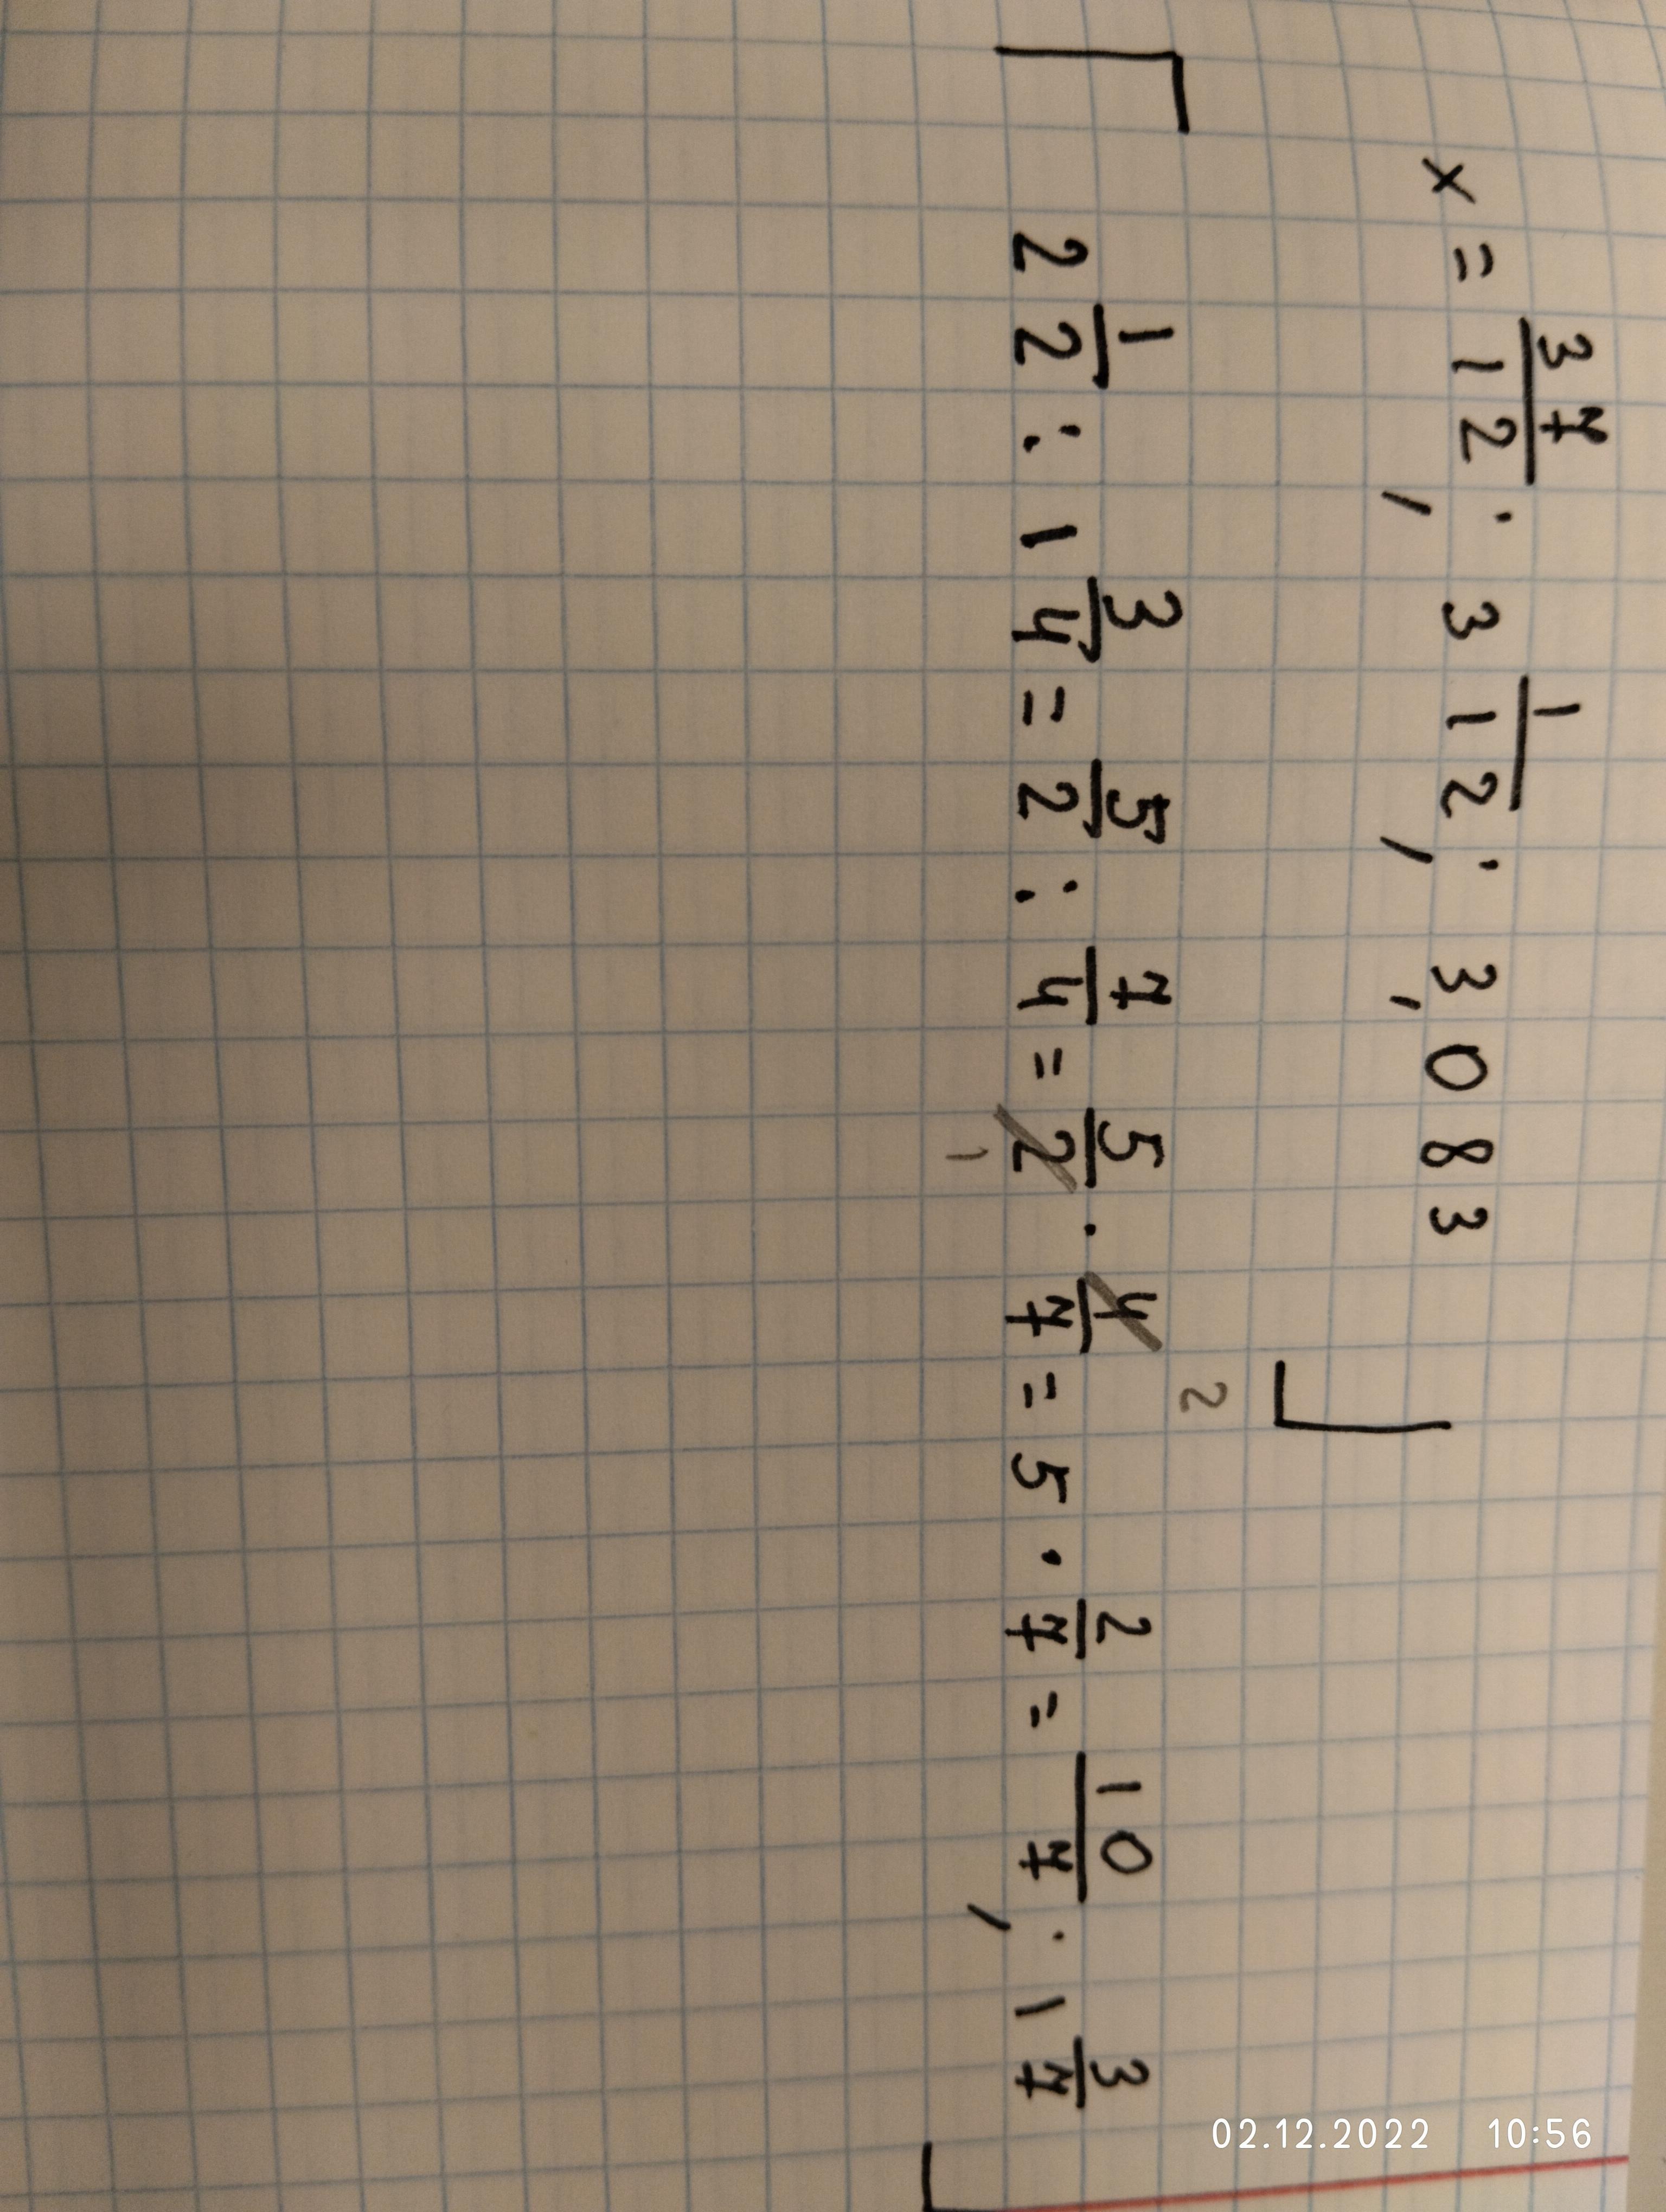 x = 37/12; 3 1/12; 3,083
2 1/2 : 1 3/4 = 5/2 : 7/4 = 5/2 1 · 4/7 2 = 5 · 2/7 = 10/7; 1 3/7
02.12.2022 10:56